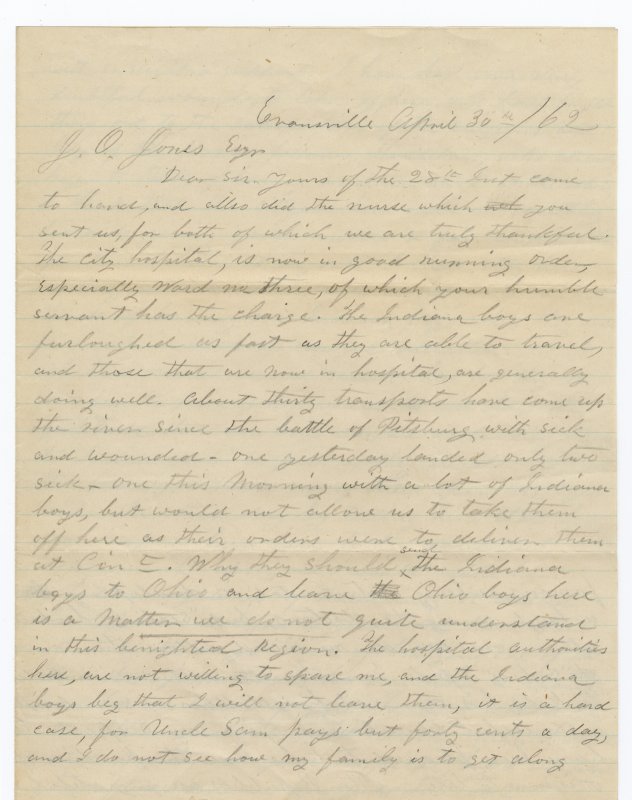 Evansville April 30th/62
J. O. Jones Esqr
Dear Sir. Yours of the 28th Inst came
to hand, and allso did the nurse which you
sent us, for both of which we are truly thankful.
The City hospital, is now in good running order,
Especially Ward no three, of which your humble
servant has the charge. The Indiana boys are
furloughed as fast as they are able to travel,
and those that are now in hospital, are generally
doing well. About thirty transports have come up
the river since the battle of Pitsburg with sick
and wounded - one yesterday landed only two
sick - one this Morning with a lot of Indiana
boys, but would not allow us to take them
off here as their orders were to deliver them
at Cin E. Why they should send the Indiana
boys to Ohio and leave the Ohio boys here
is a Matter we do not quite understand
in this benighted Region. The hospital authorities
here, are not willing to spare me, and the Indiana
boys beg that I will not leave them, it is a hard
case, for Uncle Sam pays but forty cents a day,
and I do not see how my family is to get along